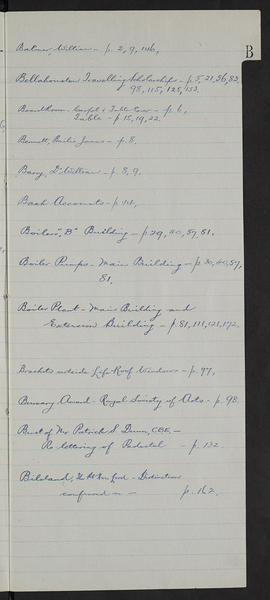 B
Balmer, William - p. 2, 9, 146,
Bellahouston Travelling Scholarship - p. 5, 21, 36, 83,
98, 115, 125, 153.
Boardroom - Carpet & Table Cover - p. 6,
Table - p. 15, 19, 22.
Bennett, James - p. 8.
Barry, Dr William - p. 8, 9.
Bank Accounts - p.
Boiler, "B" Building - p 29, 40, 57, 81.
Boiler Pumps - Main Building - p 30, 40, 57,
81.
Boiler Plant - Main Building and
Extension Building - p. 81, 111, 121, 172.
Brackets outside Life Roof Windows - p. 97,
Bursary Award - Royal Society of Arts - p. 98.
Bust of Mr Patrick S Dunn, CBE, -
Re lettering of Pedestal - p. 132
Bilsland, The Rt Hon Lord - Distinction
conferred on - p. 162.